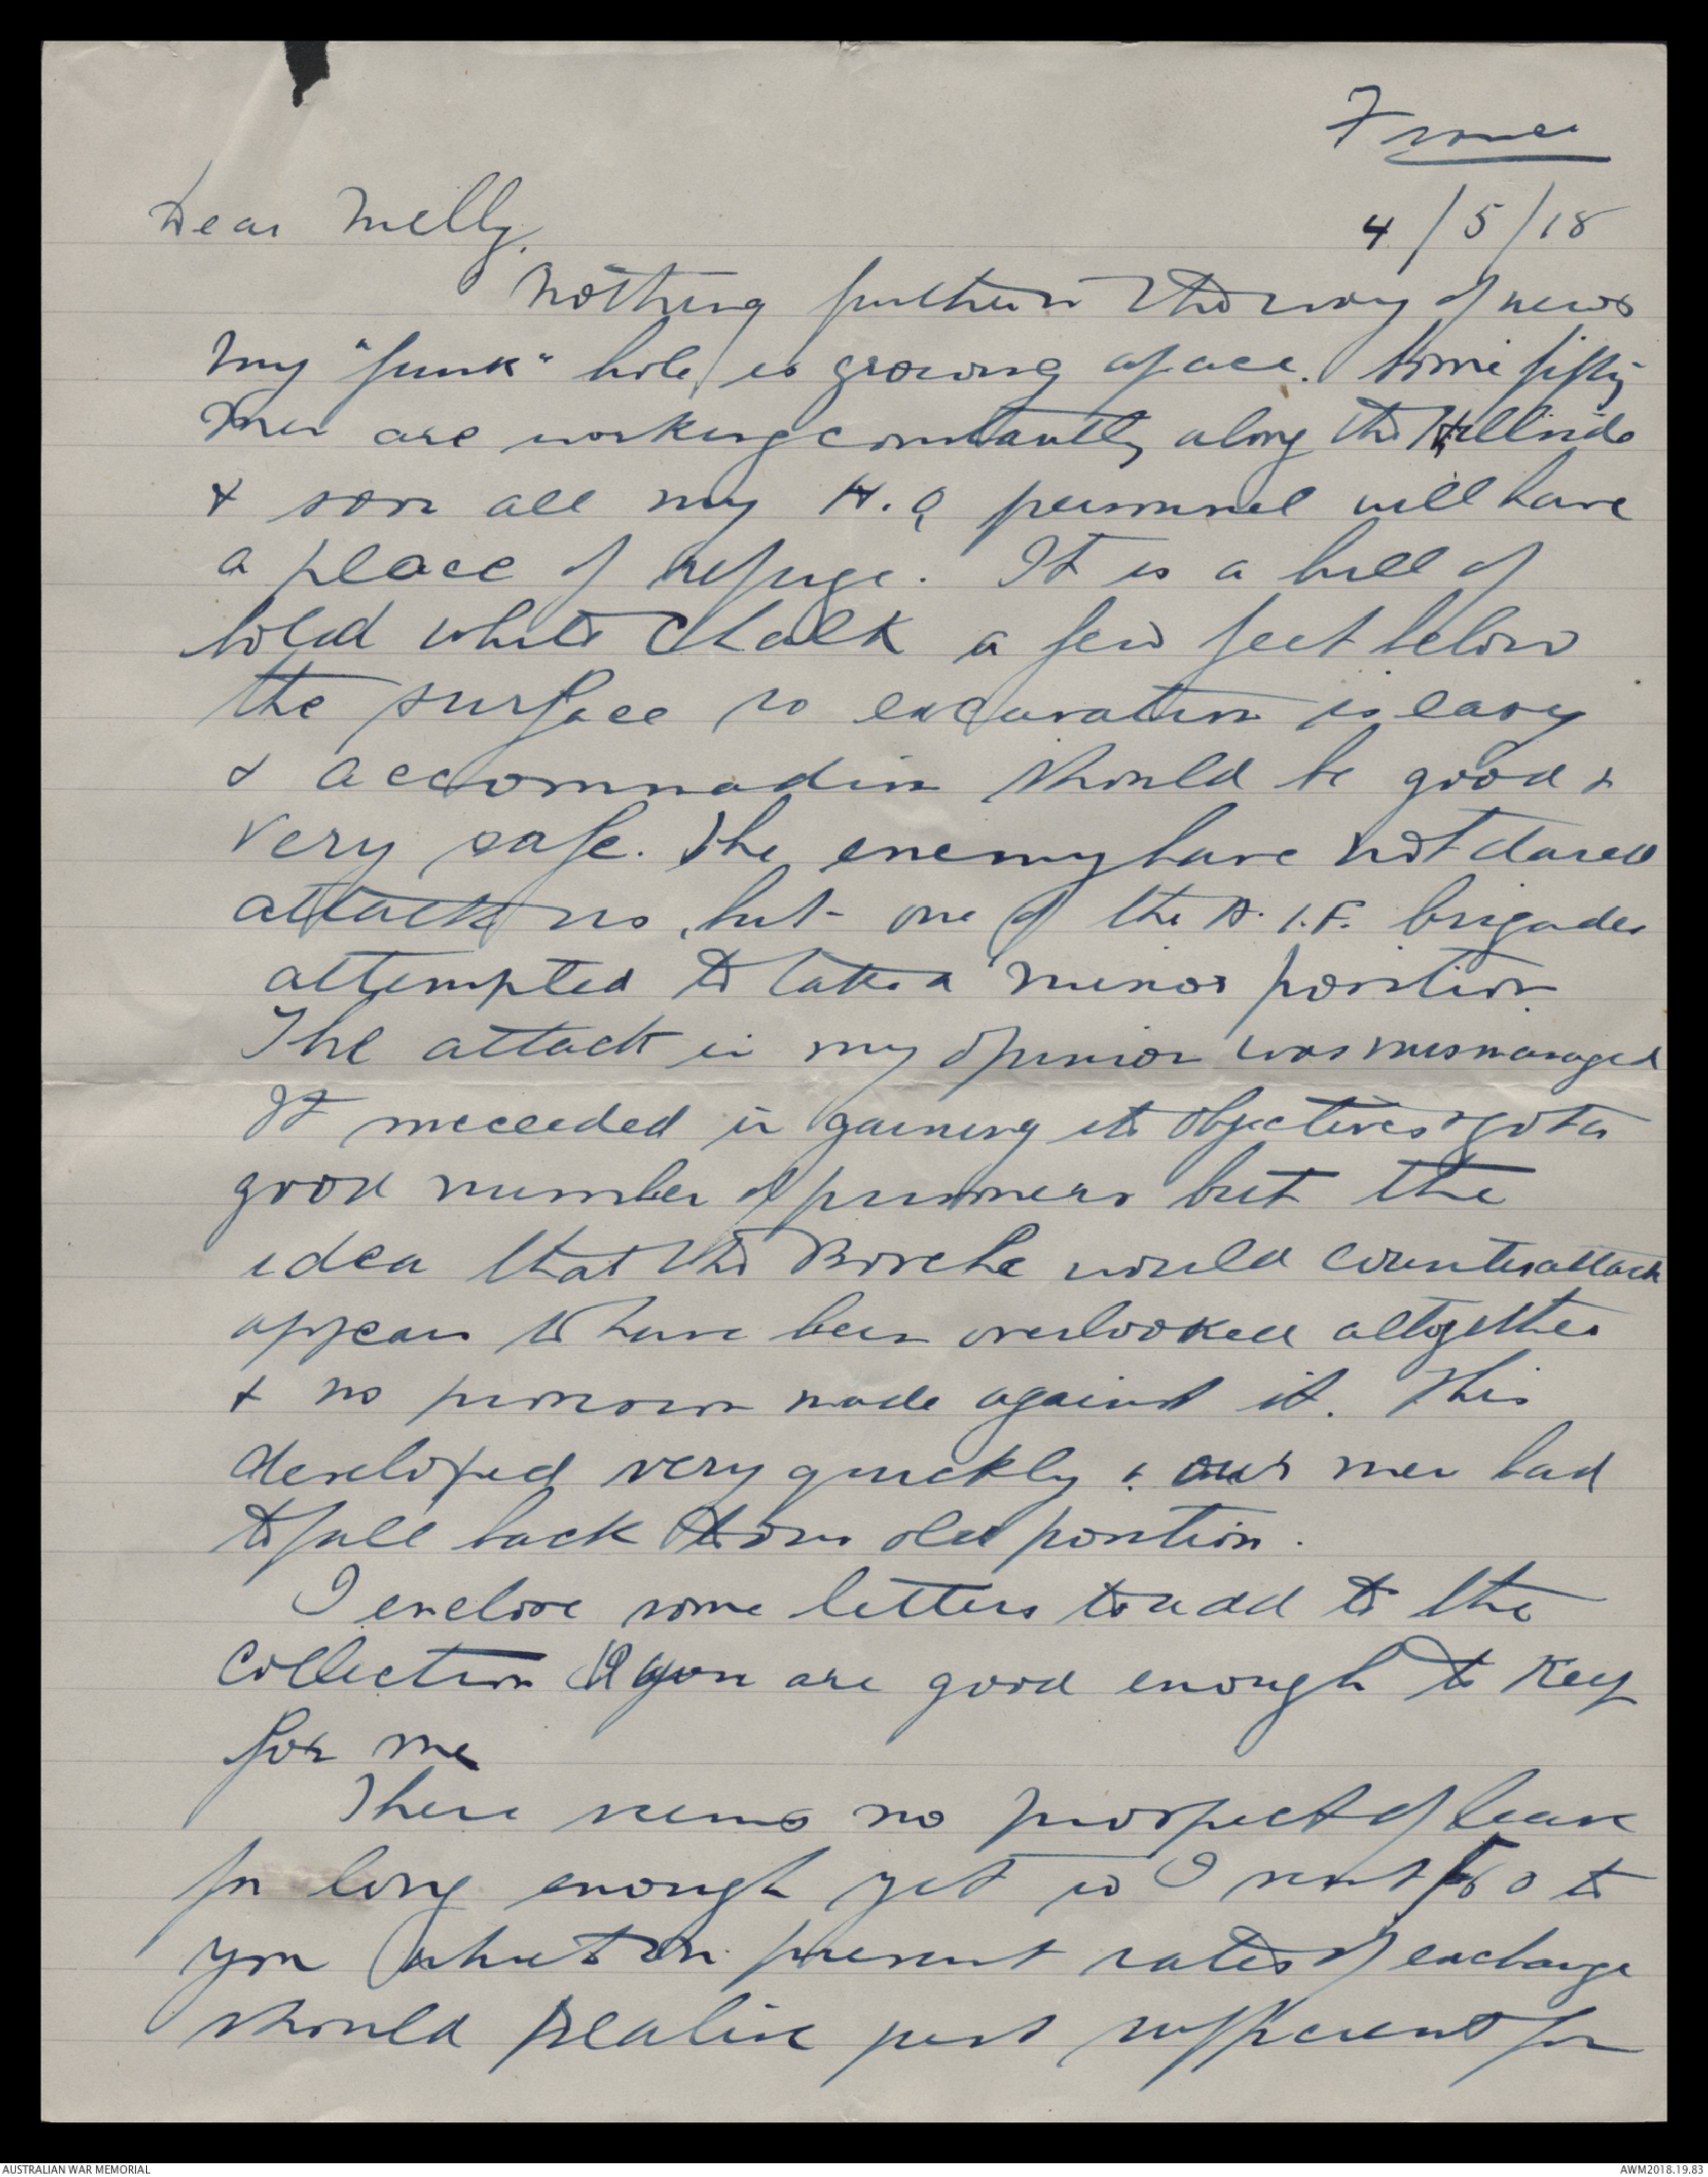 France
4/5/18
Dear Melly.
Nothing further in the way of news
My "funk" hole is growing apace. Some fifty
men are working constantly along the Hillside
& soon all my H.Q personnel will have
a place of refuge. It is a hill of
solid white chalk a few feet below
the surface so excavation is easy
& accommadion should be good &
very safe. The enemy have not dared
attack us, but one of the A.I.F. brigades
attempted to take a minor position
The attack in my opinion was mismanaged
It succeeded in gaining its objectives & got a
good number of prisoners but the
idea that the Bosche would counterattack
appears to have been overlooked altogether
& no provision made against it. This
developed very quickly & our men had
to fall back to our old position.
I enclose some letters to add to the
collection you are good enough to keep
for me
There seems no prospect of leave
for long enough yet so I sent £60 to
you what on present rates of exchange
should realise just sufficient for
AUSTRALIAN WAR MEMORIAL
AWM2018.19.83